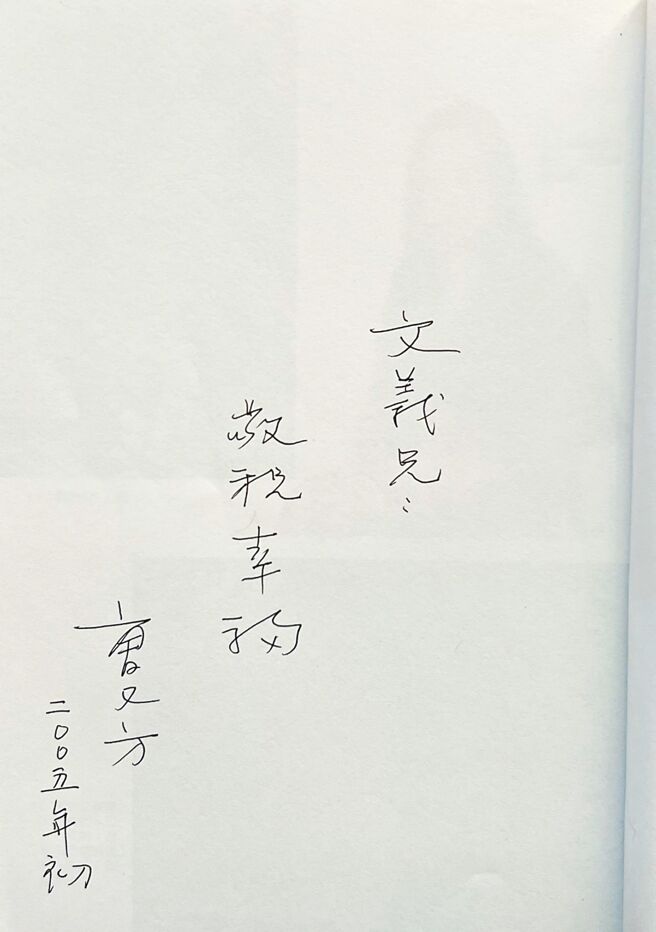 文義兄：
敬祝幸福
曹又方
二００五年初